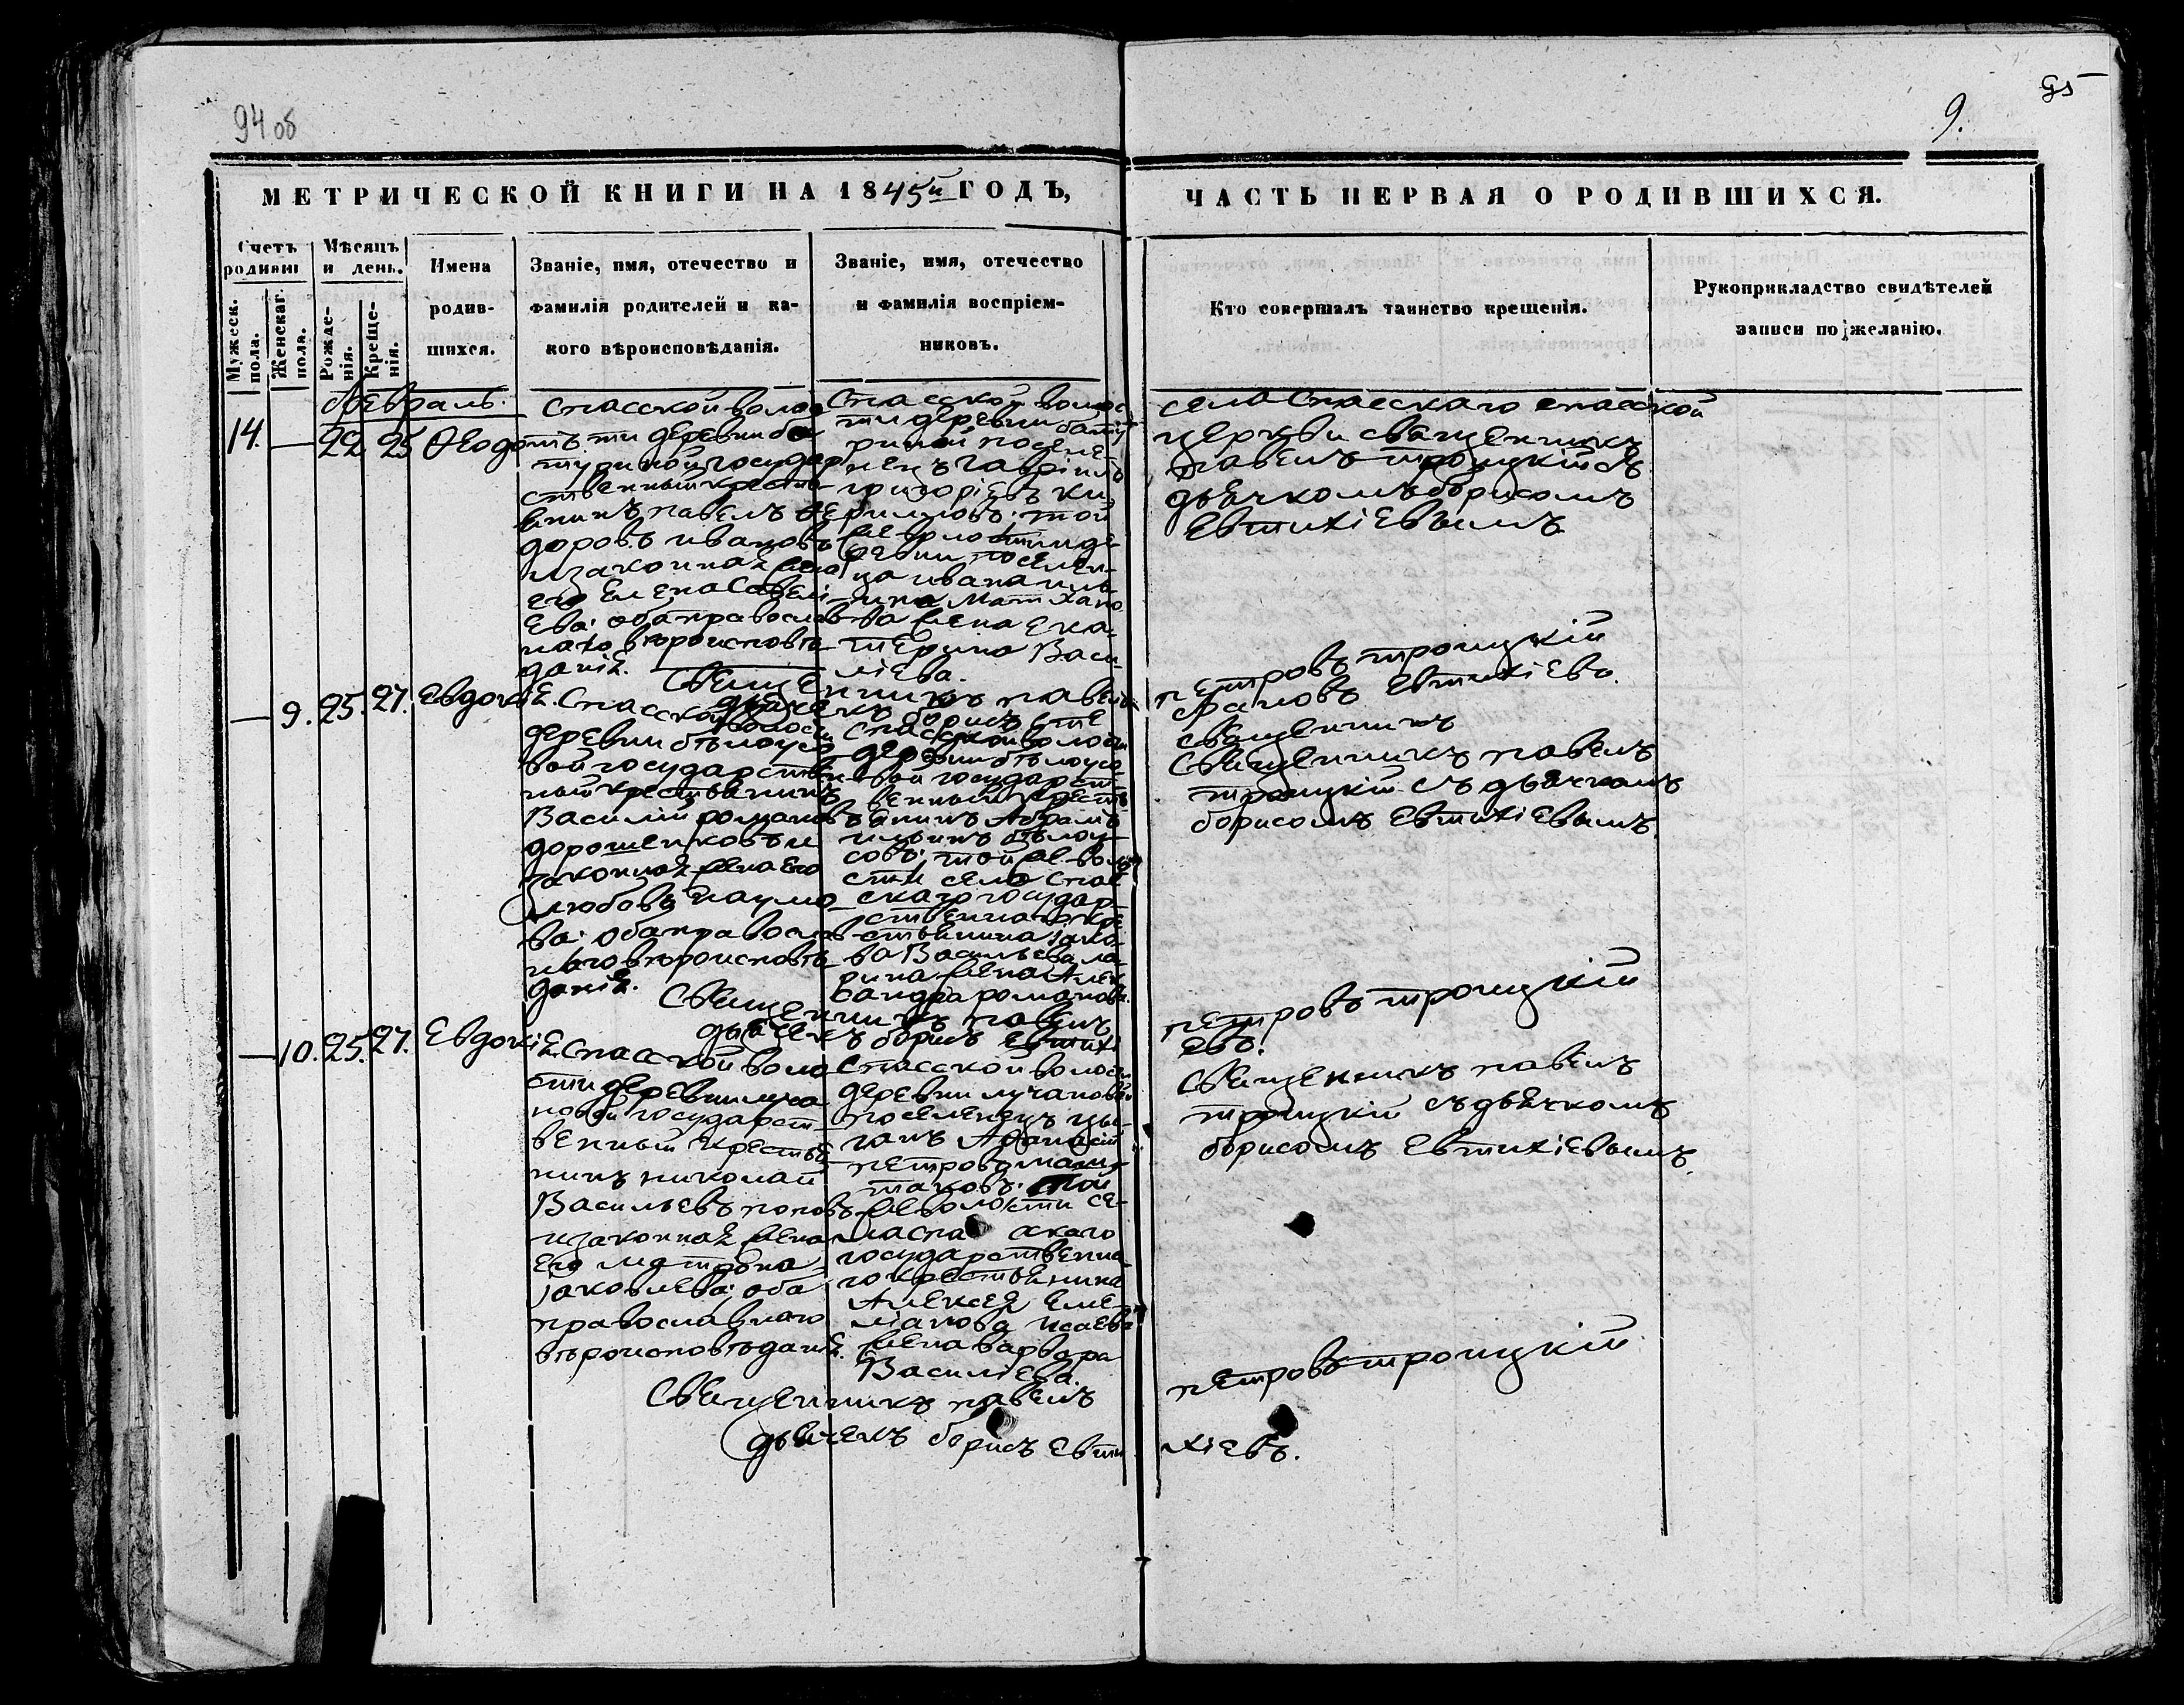 94 об
95
9.
МЕТРИЧЕСКОЙ КНИГИ НА 1845й ГОДЪ,
ЧАСТЬ ПЕРВАЯ О РОДИВШИХСЯ.
Счетъ родивш
Мѣсяцъ и день.
Мужеск. пола.
Женскаг. пола.
Рожде-нія.
Креще-нія.
Имена
родив-
шихся.
Званіе, имя, отечество и
фамилія родителей и ка-
кого вѣроисповѣданія.
Званіе, имя, отечество
и фамилія воспріем-
никовъ.
Кто совершалъ таинство крещенія.
Рукоприкладство свидѣтелей
записи по желанію.
февраль.
14. — 22 25 Ѳеодотъ
спасской волос
ти деревни ба
туриной государ
ственный крестья
нинъ павелъ ѳе
доровъ ивановъ
и законная жена
его Елена Савель
ева: оба православ
наго вѣроисповѣ
данія.
Спасской волос
ти деревни бату
риной поселе
нецъ гавріилъ
григоріевъ ки
риловъ; той
же волости и де
ревни поселен
ца ивана
Матѳано
ва жена ека
терина Васи
ліева.
села Спасскаго спасской
церкви священникъ
павелъ троицкій съ
дьячкомъ борисомъ
Евтихіевымъ
Священникъ павелъ петровъ троицкій
дьячекъ борисъ Евтихіевъ.
— 9. 25. 27. Евдокія.
Спасской волости
деревни бѣлоусо
вой государствен
ный крестьянинъ
Василій романовъ
дорошенковъ и
законная жена его
любовь наумо
ва: оба православ
наго вѣроисповѣ
данія.
спасской волости
деревни бѣлоусо
вой государст
венный кресть
янинъ Абрамъ
ильинъ бѣлоу
совъ; той же воло
сти села спас
скаго государ
ственнаго кре
стьянина яко
ва Васильева ла
рина жена Алек
сандра романова.
священникъ
Священникъ павелъ
троицкій съ дьячкомъ
борисомъ Евтихіевымъ.
Священникъ павелъ петровъ троицкій
дьячекъ борисъ Евтихіевъ.
— 10. 25. 27. Евдокія.
Спасской воло
сти деревни луча
новой государст
венный крестья
нинъ николай
Васильевъ поповъ
и законная жена
его матрона
яковлева; оба
православнаго
вѣроисповѣданія.
Спасской волости
деревни лучановой
поселенецъ цы
ганъ Афанасій
петровъ
той
же волости се
ла спа скаго
государственна
го крестьянина
Алексея Еме
ліанова исаева
жена варвара
Василіева.
Священникъ павелъ
троицкій съ дьячкомъ
борисомъ Евтихіевымъ.
Священникъ павелъ петровъ троицкій
дьячекъ борисъ Евтихіевъ.